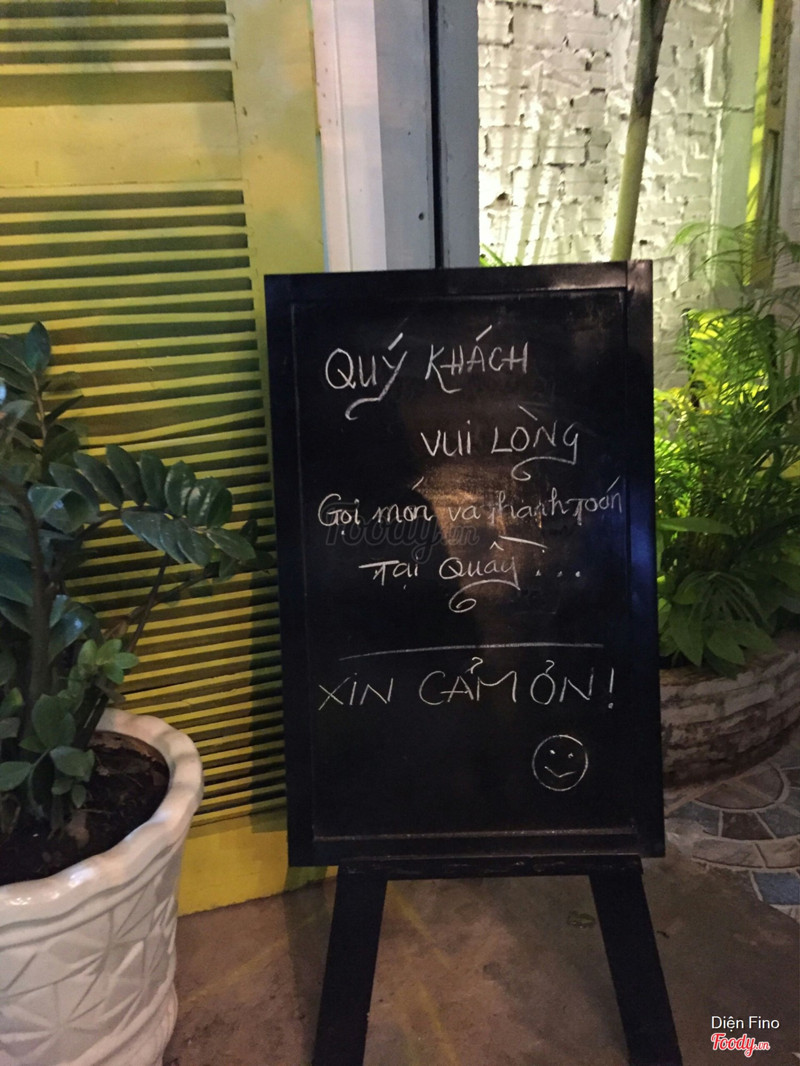 QUÝ KHÁCH
VUI LÒNG
Gọi món và thanh toán
Tại Quầy...
XIN CẢM ƠN!
Foody.vn
Diện Fino
Foody.vn